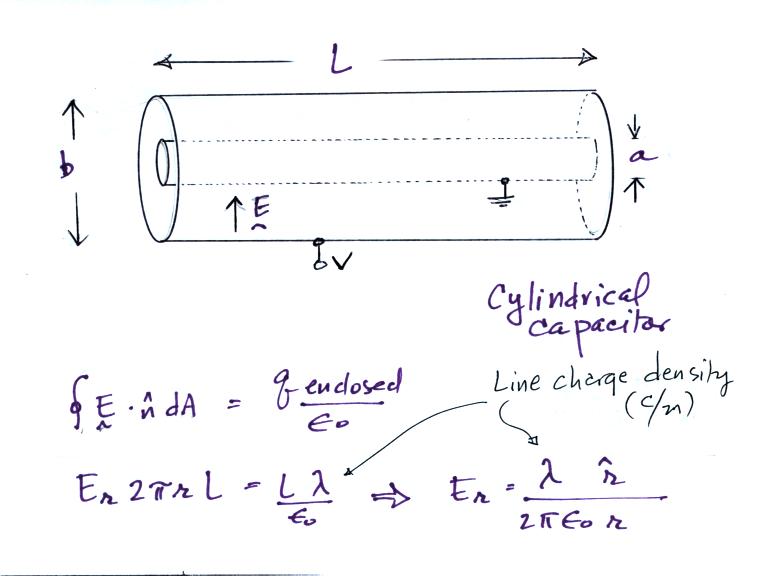 L
b
a
E
V
Cylindrical
capacitor
∮ E · n̂ dA = q enclosed / ε₀
Line charge density
(C/m)
Eᵣ 2πr L = L λ / ε₀ ⇒ Eᵣ = λ r̂ / 2π ε₀ r